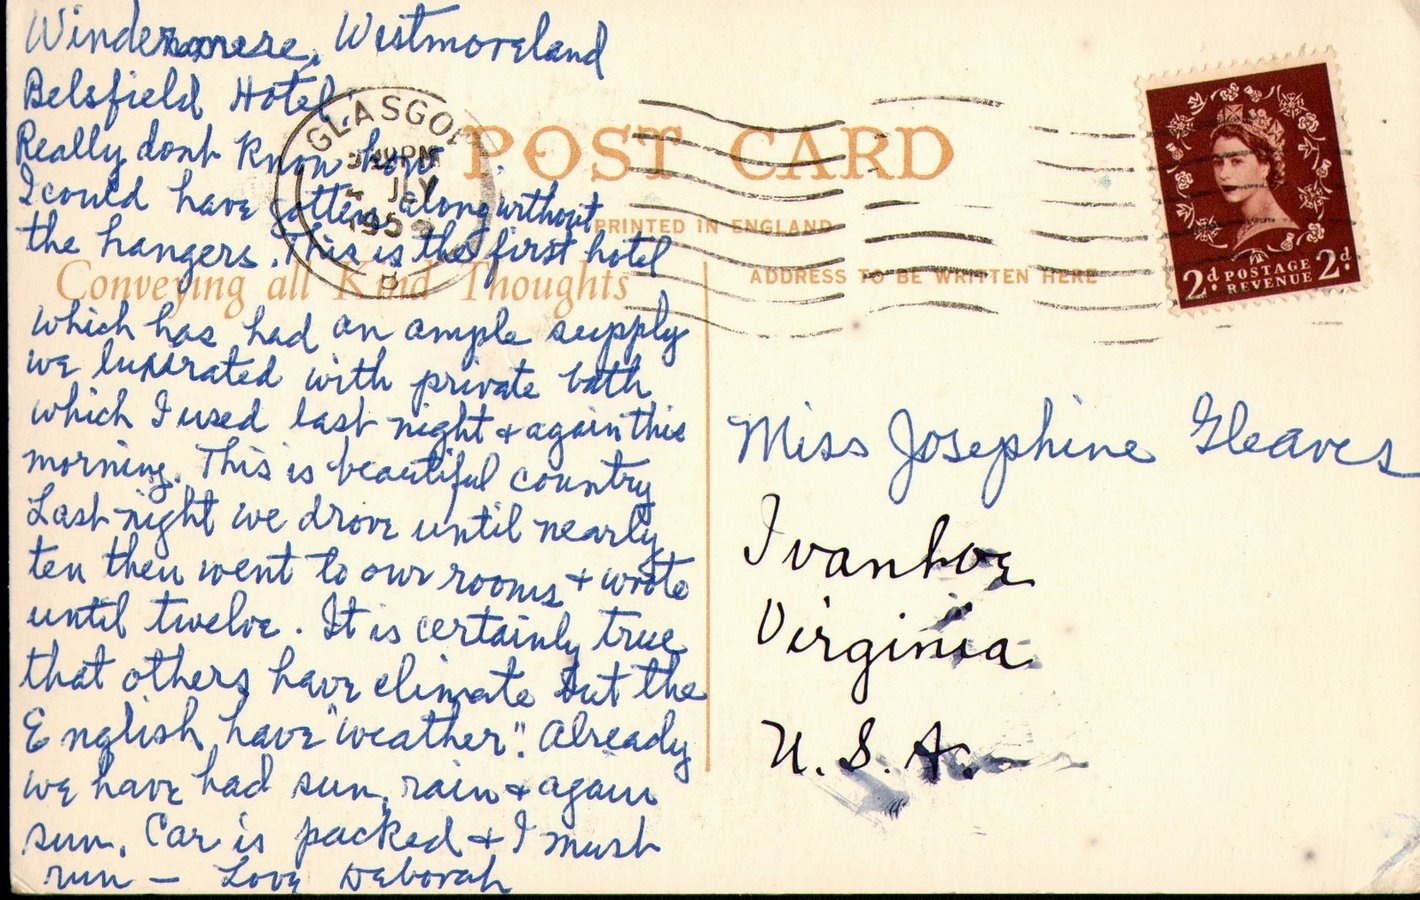 Windermere, Westmoreland
Belsfield Hotel.
Really dont know how
I could have gotten along without
the hangers. This is the first hotel
which has had an ample supply
we luxurated with private bath
which I used last night & again this
morning. This is beautiful country
Last night we drove until nearly
ten then went to our rooms & wrote
until twelve. It is certainly true
that others have climate but the
English have "weather". Already
we have had sun, rain & again
sun. Car is packed & I must
run — Love Deborah
GLASGOW
PM
JLY
195
POST CARD
PRINTED IN ENGLAND
Conveying all Kind Thoughts
ADDRESS TO BE WRITTEN HERE
2d. POSTAGE REVENUE 2d.
Miss Josephine Gleaves
Ivanhoe
Virginia
U.S.A.